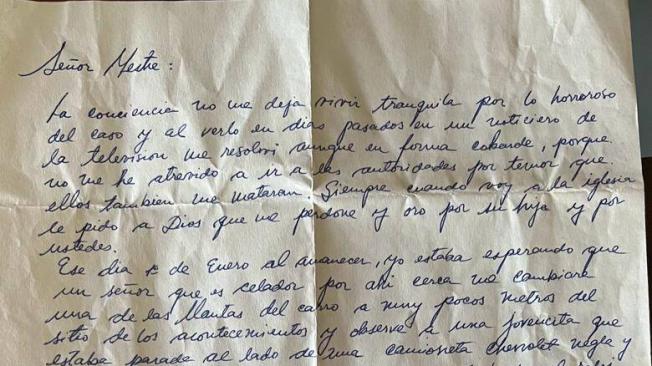 Señor Mestre:
La conciencia no me deja vivir tranquila por lo horroroso
del caso y al verlo en días pasados en un noticiero de
la television me resolví aunque en forma cobarde, porque
no me he atrevido a ir a las autoridades por temor que
ellos tambien me mataran. Siempre cuando voy a la iglesia
le pido a Dios que me perdone y oro por su hija y por
ustedes.
Ese dia 1º de Enero al amanecer, yo estaba esperando que
un señor que es celador por ahi cerca me cambiara
una de las llantas del carro a muy pocos metros del
sitio de los acontecimientos y observe a una jovencita que
estaba parada al lado de una camioneta chevrolet negra y